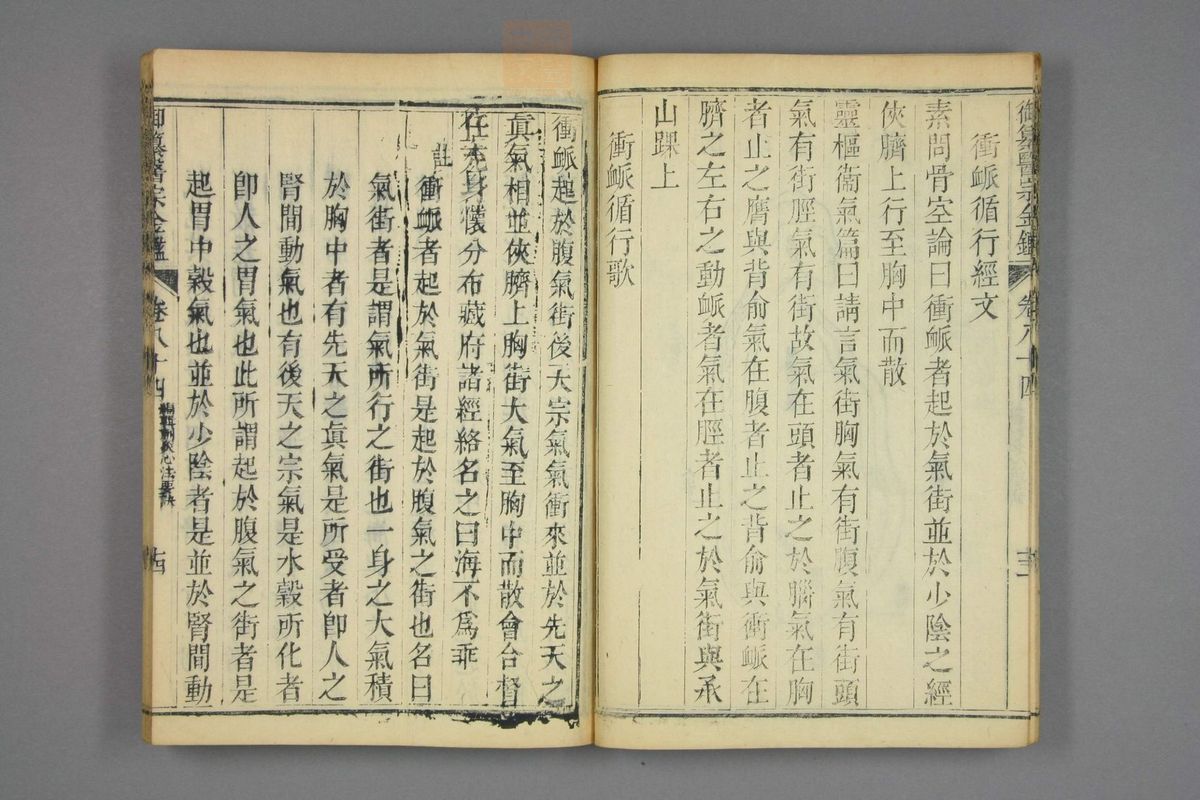 御纂醫宗金鑑 卷八十四
衝脈循行經文
素問骨空論曰衝脈者起於氣街並於少陰之經
俠臍上行至胸中而散
靈樞衞氣篇曰請言氣街胸氣有街腹氣有街頭
氣有街脛氣有街故氣在頭者止之於腦氣在胸
者止之膺與背俞氣在腹者止之背俞與衝脈在
臍之左右之動脈者氣在脛者止之於氣街與承
山踝上
衝脈循行歌
衝脈起於腹氣街後天宗氣氣衝來並於先天之
眞氣相並俠臍上胸街大氣至胸中而散會合督
任充身懷分布藏府諸經絡名之曰海不爲乖
註
衝脈者起於氣街是起於腹氣之街也名曰
氣街者是謂氣所行之街也一身之大氣積
於胸中者有先天之眞氣是所受者卽人之
腎間動氣也有後天之宗氣是水穀所化者
卽人之胃氣也此所謂起於腹氣之街者是
起胃中穀氣也並於少陰者是並於腎間動
御纂醫宗金鑑 卷八十四 刺灸心法要訣